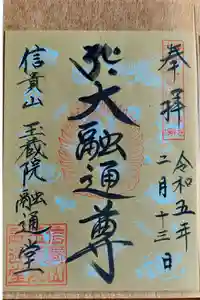 奉拝
令和五年
二月十三日
大融通尊
信貴山
玉蔵院融通堂